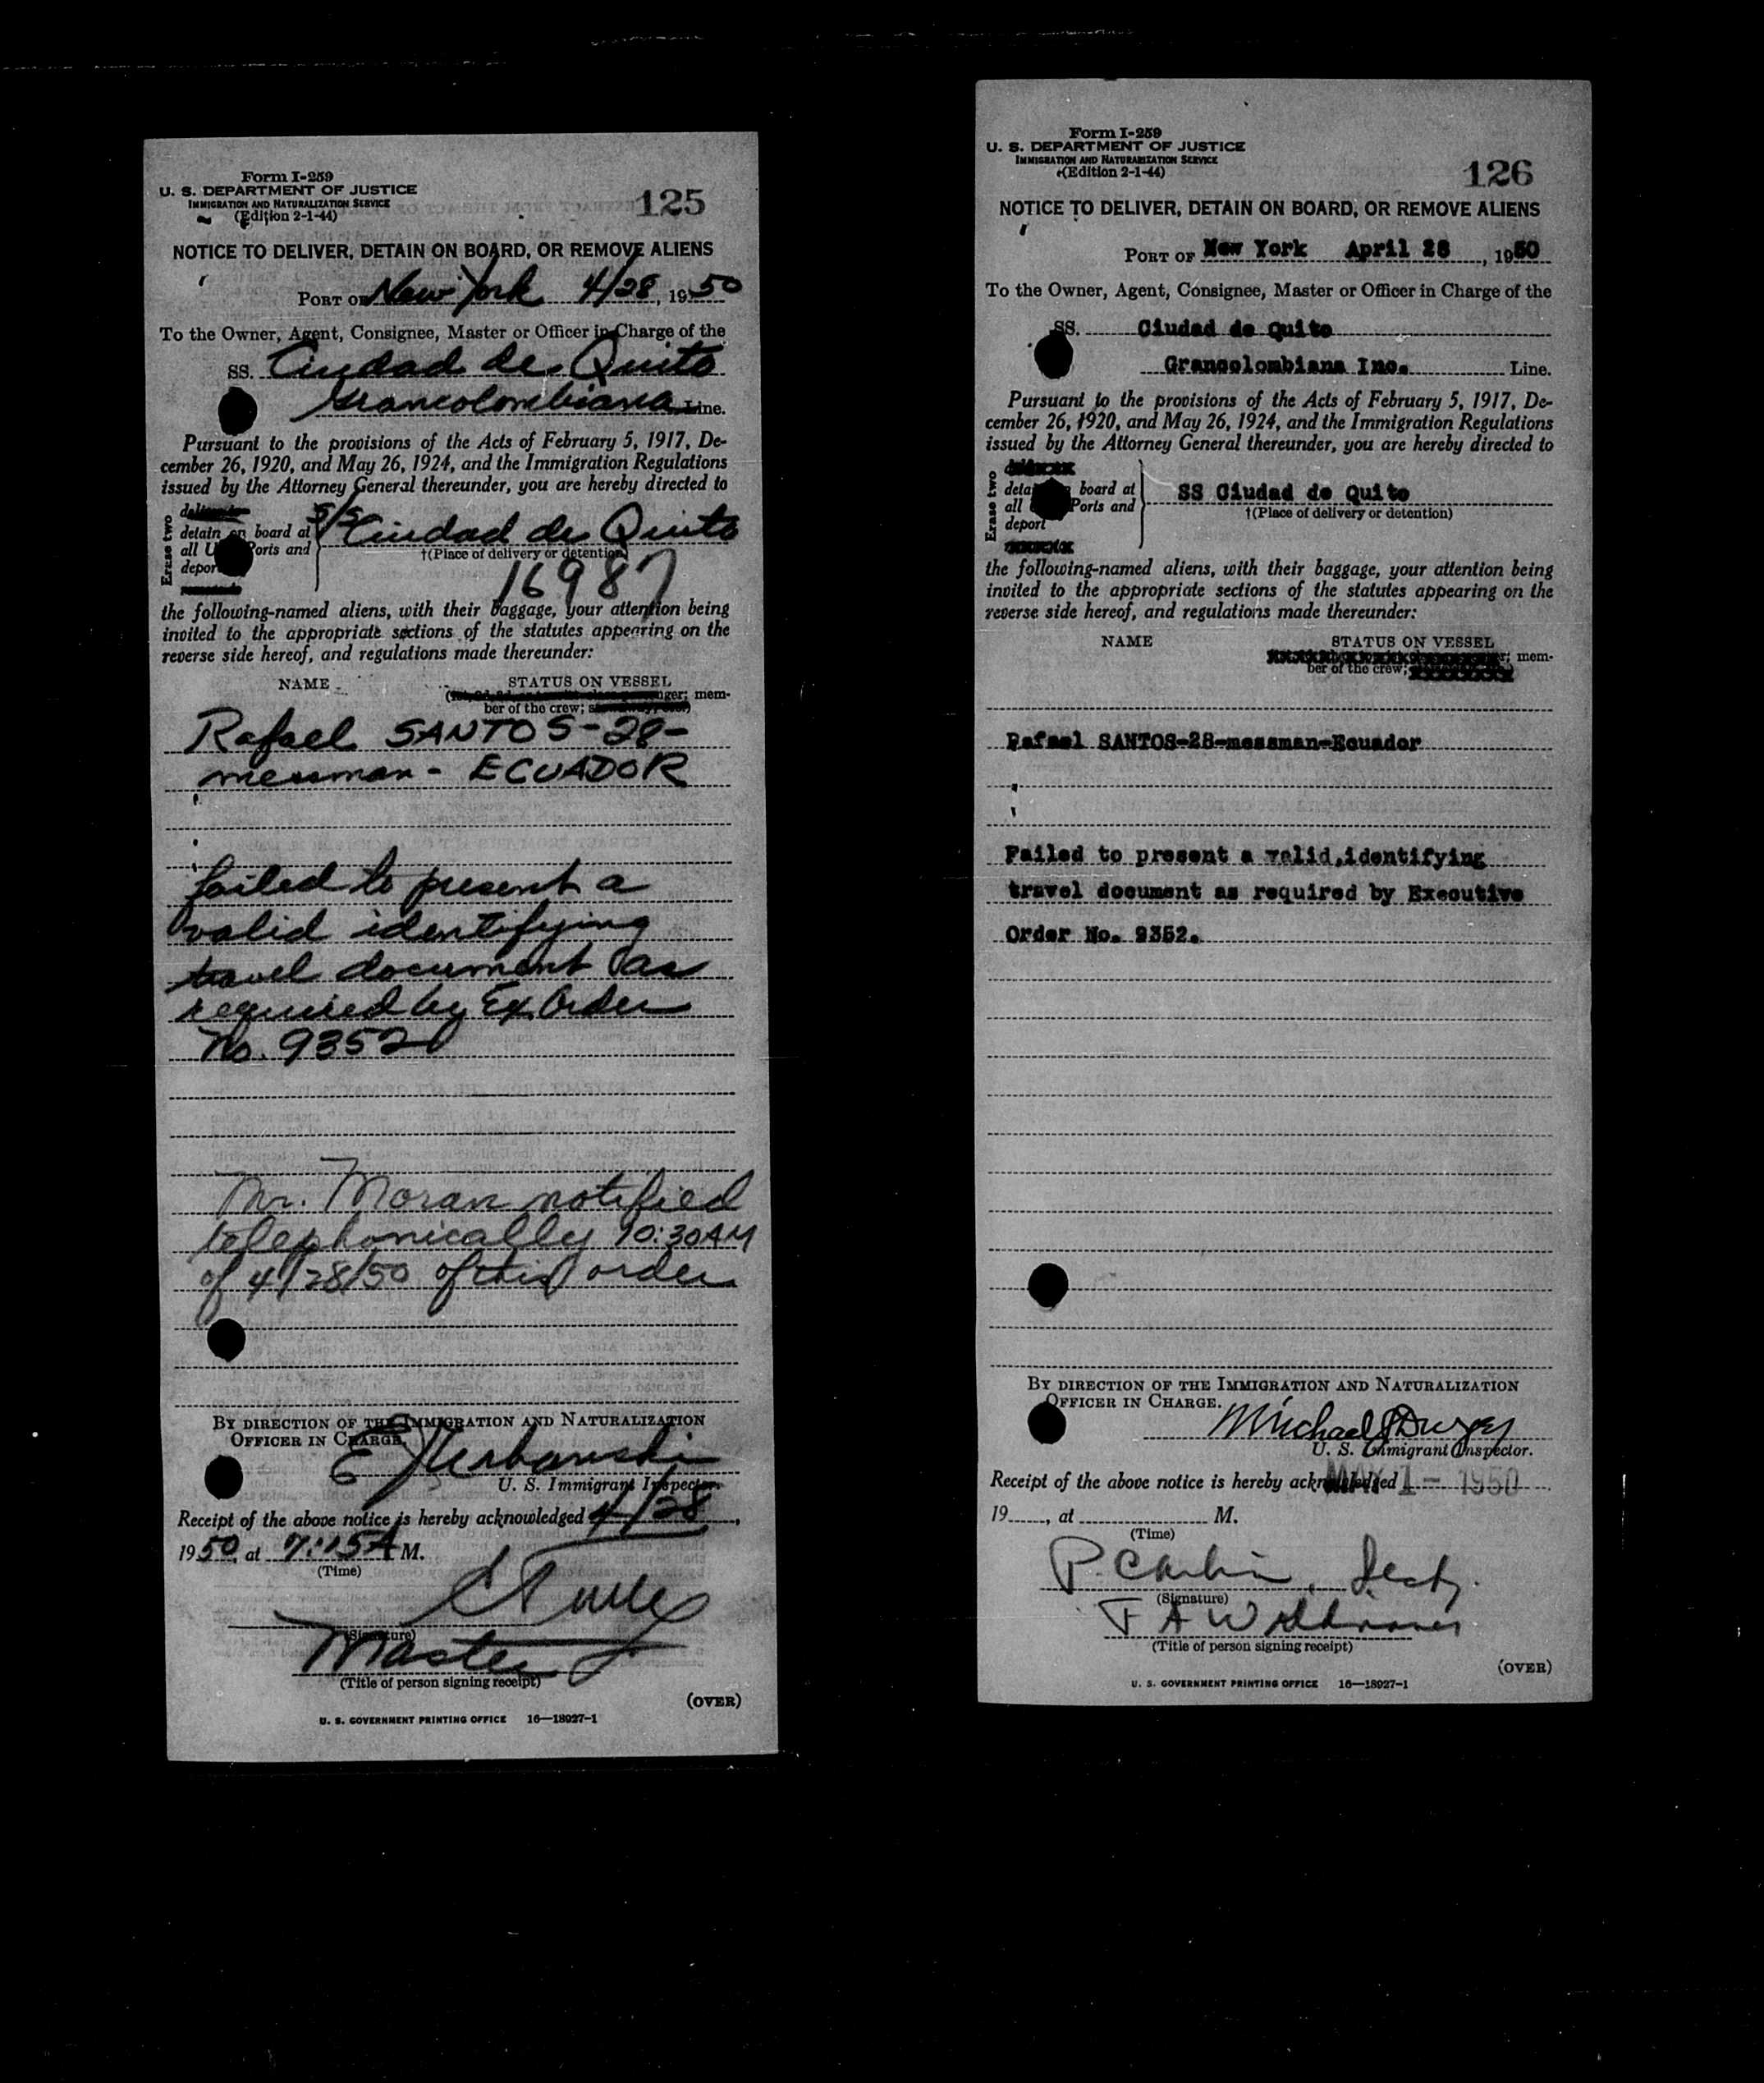 Form I-259
U. S. DEPARTMENT OF JUSTICE
IMMIGRATION AND NATURALIZATION SERVICE
(Edition 2-1-44)
125
NOTICE TO DELIVER, DETAIN ON BOARD, OR REMOVE ALIENS
PORT OF New York 4/28, 1950
To the Owner, Agent, Consignee, Master or Officer in Charge of the
SS. Ciudad de Quito
Grancolombiana Line.
Pursuant to the provisions of the Acts of February 5, 1917, De-
cember 26, 1920, and May 26, 1924, and the Immigration Regulations
issued by the Attorney General thereunder, you are hereby directed to
Erase two
detain on board at
all U Ports and
depor
S/S Ciudad de Quito
†(Place of delivery or detention)
16987
the following-named aliens, with their baggage, your attention being
invited to the appropriate sections of the statutes appearing on the
reverse side hereof, and regulations made thereunder:
NAME STATUS ON VESSEL
mem-
ber of the crew;
Rafael SANTOS-28-
messman - ECUADOR
failed to present a
valid identifying
travel document as
required by Ex. Order
No. 9352
Mr. Moran notified
telephonically 10:30AM
of 4/28/50 of this order
BY DIRECTION OF THE IMMIGRATION AND NATURALIZATION
OFFICER IN CHARGE.
E J Urbanski
U. S. Immigrant Inspector.
Receipt of the above notice is hereby acknowledged 4/28,
1950, at 7:15A M.
(Time)
(Signature)
Master
(Title of person signing receipt)
(OVER)
U. S. GOVERNMENT PRINTING OFFICE 16—18927-1
Form I-259
U. S. DEPARTMENT OF JUSTICE
IMMIGRATION AND NATURALIZATION SERVICE
(Edition 2-1-44)
126
NOTICE TO DELIVER, DETAIN ON BOARD, OR REMOVE ALIENS
PORT OF New York April 28, 1950
To the Owner, Agent, Consignee, Master or Officer in Charge of the
SS. Ciudad de Quito
Grancolombiana Inc. Line.
Pursuant to the provisions of the Acts of February 5, 1917, De-
cember 26, 1920, and May 26, 1924, and the Immigration Regulations
issued by the Attorney General thereunder, you are hereby directed to
Erase two
deta board at
all Ports and
deport
SS Ciudad de Quito
†(Place of delivery or detention)
the following-named aliens, with their baggage, your attention being
invited to the appropriate sections of the statutes appearing on the
reverse side hereof, and regulations made thereunder:
NAME STATUS ON VESSEL
mem-
ber of the crew;
Rafael SANTOS-28-messman-Ecuador
Failed to present a valid,identifying
travel document as required by Executive
Order No. 9352.
BY DIRECTION OF THE IMMIGRATION AND NATURALIZATION
OFFICER IN CHARGE.
Michael
U. S. Immigrant Inspector.
Receipt of the above notice is hereby acknowledged MAY 1 - 1950
19, at M.
(Time)
P.
(Signature)
(Title of person signing receipt)
(OVER)
U. S. GOVERNMENT PRINTING OFFICE 16—18927-1